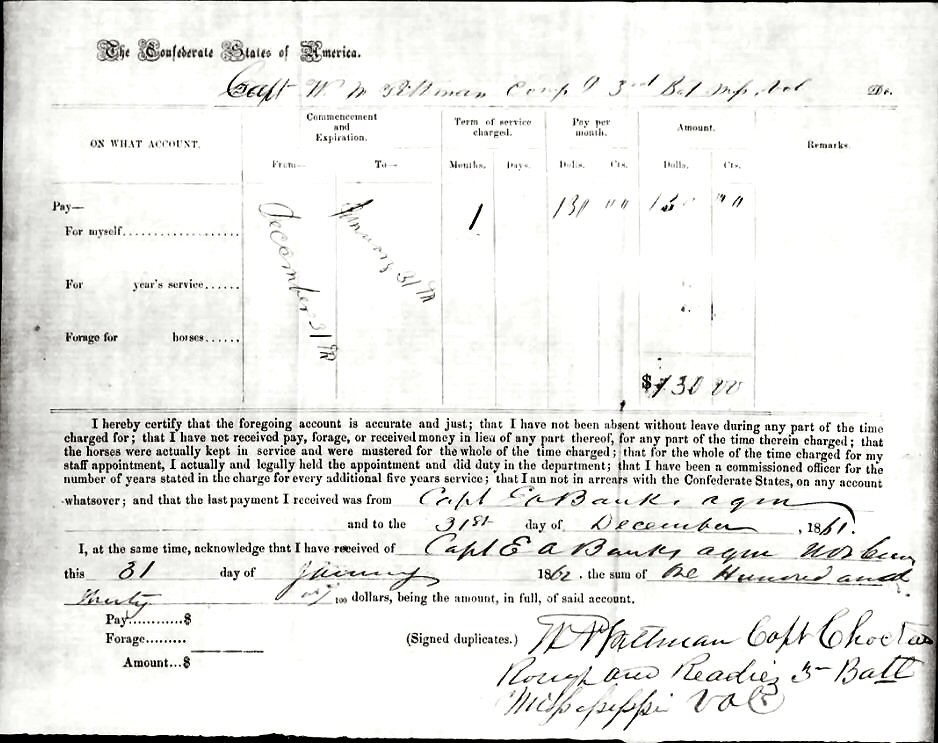 The Confederate States of America.
Capt W M Pittman Comp 3rd Bat Mip. Vol Dr.
ON WHAT ACCOUNT. Commencement and Expiration. Term of service charged. Pay per month. Amount. Remarks.
From— To— Months. Days. Dolls. Cts. Dolls. Cts.
Pay—
For myself.................... December 31st January 31st 1 130 00 130 00
For year's service......
Forage for horses......
$130 00
I hereby certify that the foregoing account is accurate and just; that I have not been absent without leave during any part of the time
charged for; that I have not received pay, forage, or received money in lieu of any part thereof, for any part of the time therein charged; that
the horses were actually kept in service and were mustered for the whole of the time charged; that for the whole of the time charged for my
staff appointment, I actually and legally held the appointment and did duty in the department; that I have been a commissioned officer for the
number of years stated in the charge for every additional five years service; that I am not in arrears with the Confederate States, on any account
whatsover; and that the last payment I received was from Capt E A Banks aqm
and to the 31st day of December, 1861.
I, at the same time, acknowledge that I have received of Capt E A Banks aqm
this 31 day of January 1862. the sum of One Hundred and
Thirty 100 dollars, being the amount, in full, of said account.
Pay...........$
Forage.........
Amount...$
(Signed duplicates.) Pittman Capt Choctaw
Rough and Readies 3 Batt
Mississippi Vols